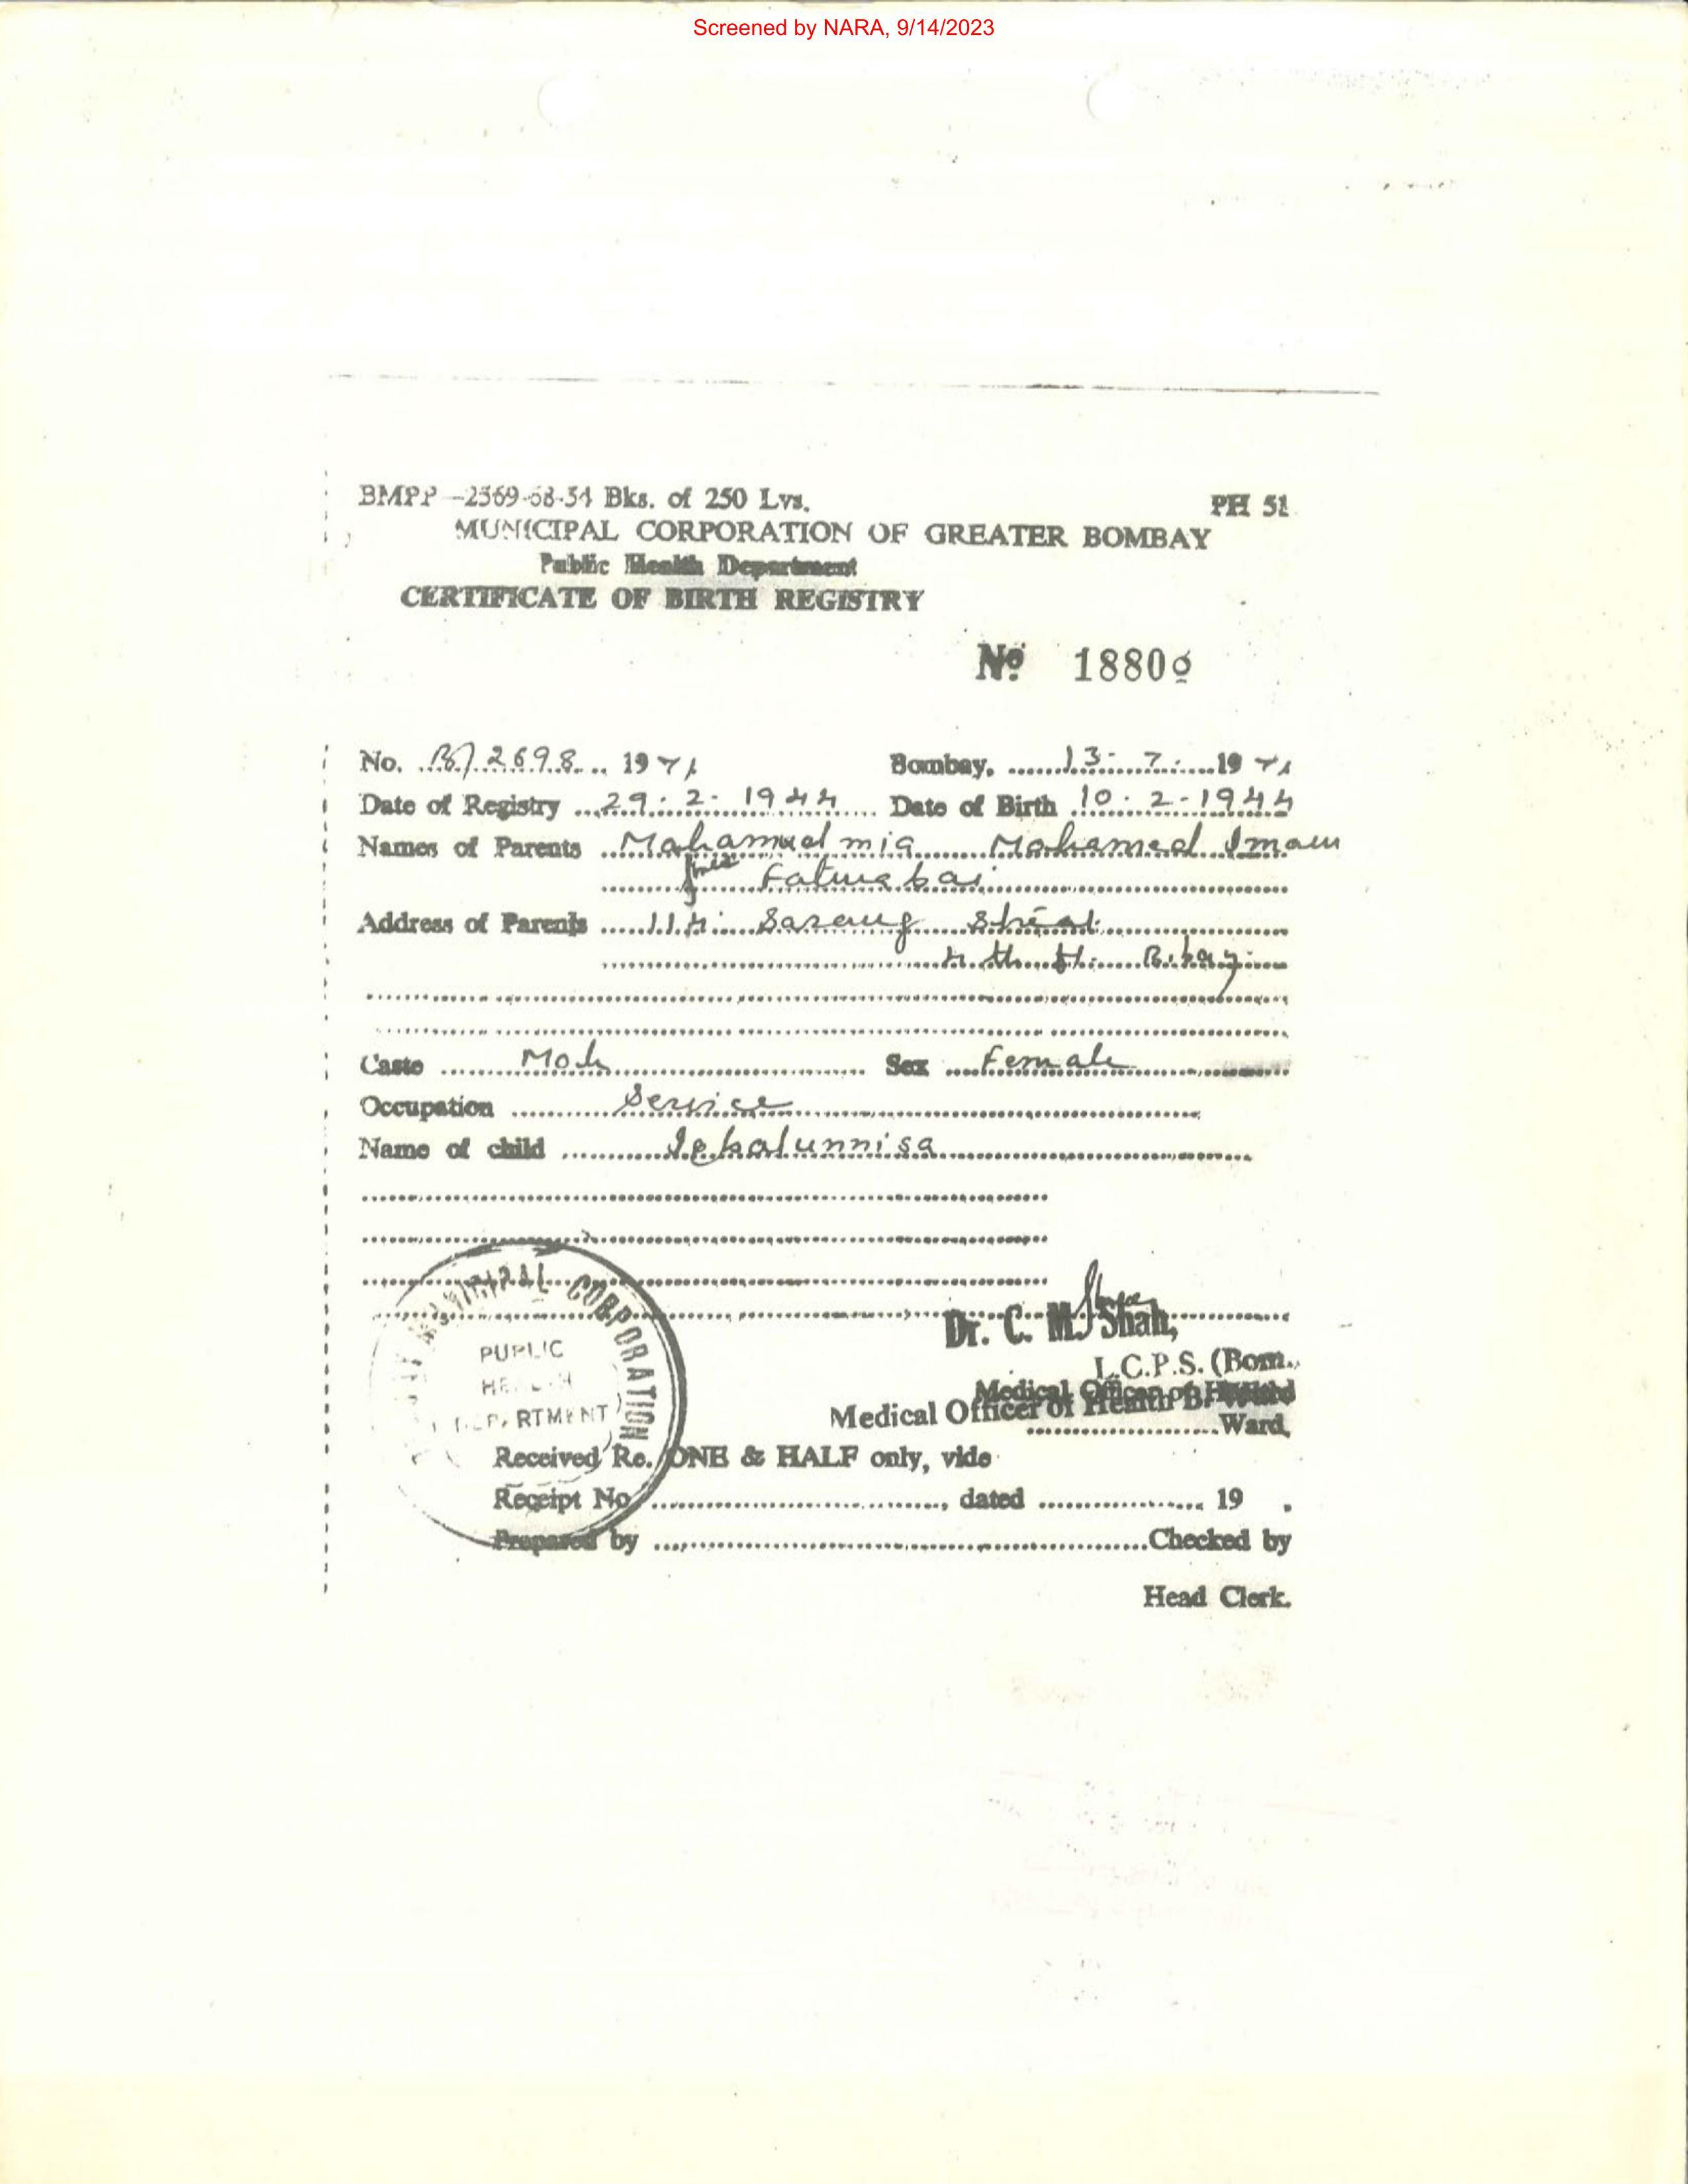 Screened by NARA, 9/14/2023
BMPP -2569-68-34 Bks. of 250 Lvs. PH 51
MUNICIPAL CORPORATION OF GREATER BOMBAY
Public Health Department
CERTIFICATE OF BIRTH REGISTRY
No. 1880
No. B/2698 1971 Bombay, 13-7-1971
Date of Registry 29-2-1944 Date of Birth 10-2-1944
Names of Parents Mohamed mia Mohamed Imam
Fatmabai
Address of Parents 114 Sarang Street
4th fl. B.bay
Caste Moh Sex Female
Occupation Service
Name of child Iqbalunnisa
MUNICIPAL CORPORATION
PUBLIC
HEALTH
DEPARTMENT
Dr. C. M. Shah,
L.C.P.S. (Bom.
Medical Officer of Health B. Ward
Medical Officer of Health
Ward.
Received Re. ONE & HALF only, vide
Receipt No, dated 19 .
Prepared by Checked by
Head Clerk.